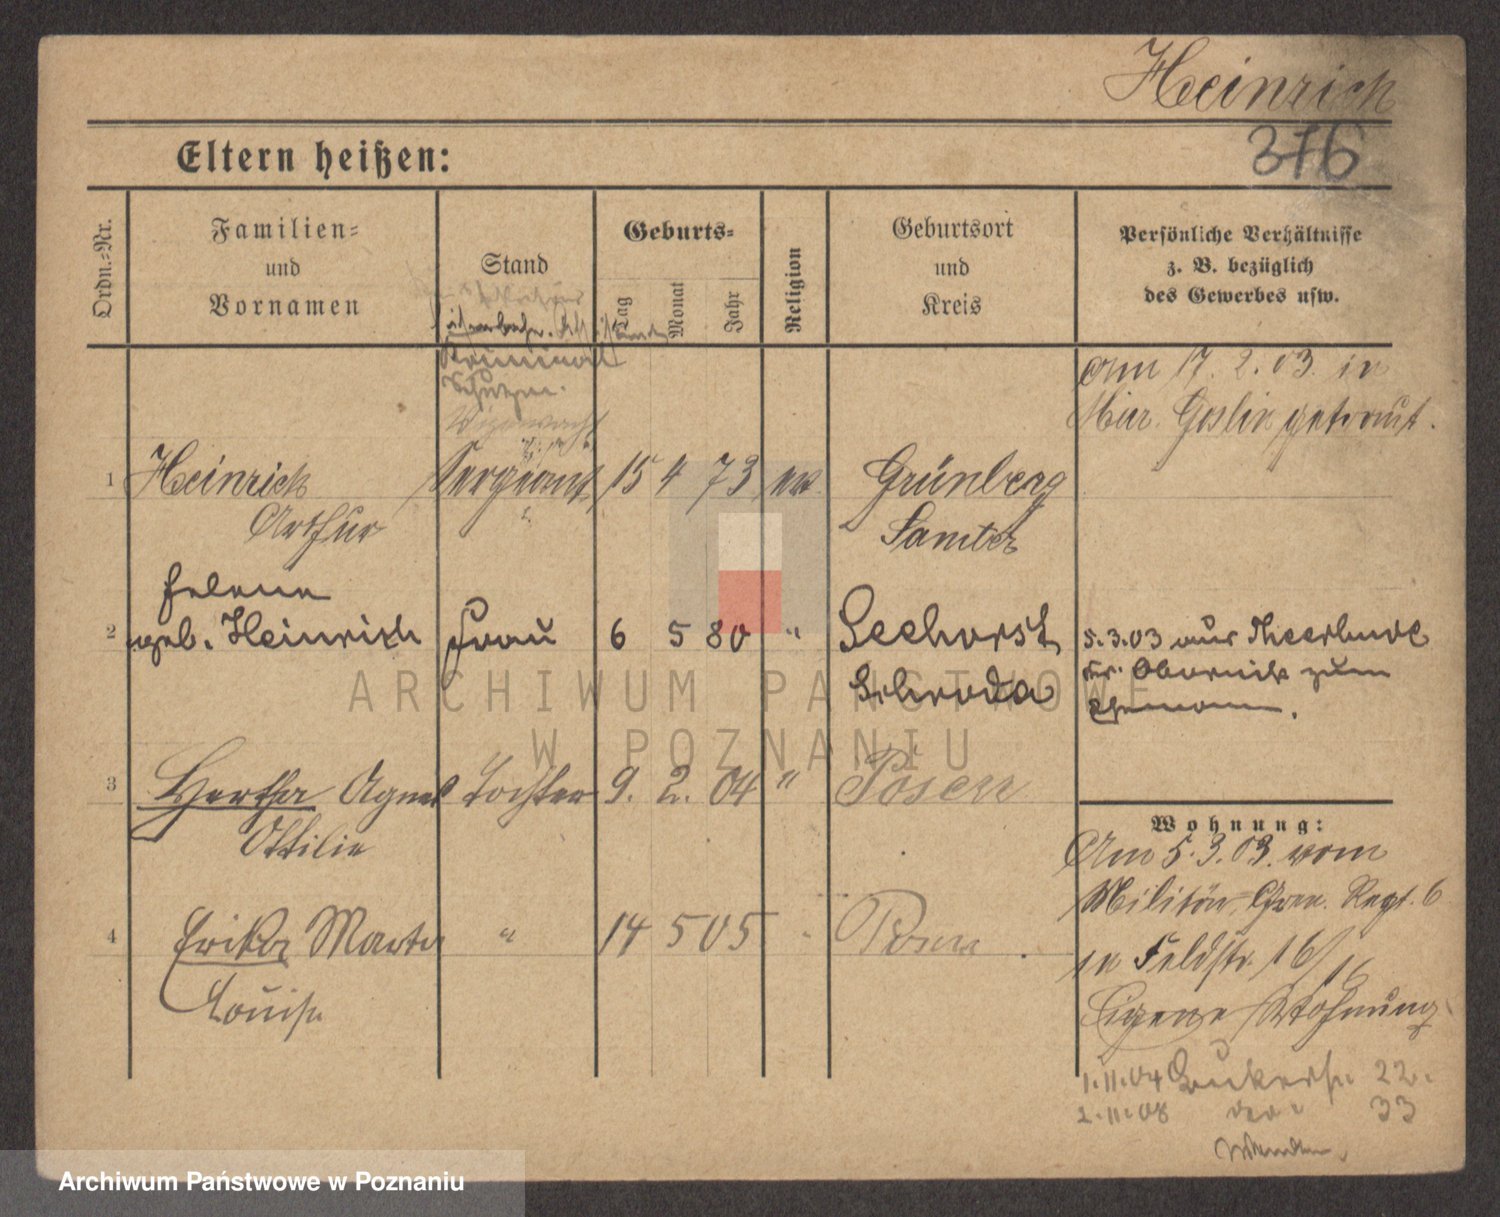 Heinrich
376
Eltern heißen:
Ordn.-Nr.
Familien-
und
Vornamen
Stand
Geburts-
Tag
Monat
Jahr
Religion
Geburtsort
und
Kreis
Persönliche Verhältnisse
z. B. bezüglich
des Gewerbes usw.
Kriminal
Schutzm.
Am 17. 2. 03. in
Mur. Goslin getraut.
1 Heinrich Sergeant 15 4 73 ev Grünberg
Arthur Samter
Helene
2 geb. Heinrich Frau 6 5 80 " Seehorst
Schroda
5.3.03 aus Theerbude
Kr. Obornik zum
Ehemann.
3 Hertha Agnes Tochter 9. 2. 04 " Posen
Ottilie
4 Erika Marta " 14 5 05 Posen
Louise
Wohnung:
Am 5.3.03. vom
Militär, Gren. Regt. 6
in Feldstr. 16/16
Eigene Wohnung
1.11.04 22.
2.11.08 33
Wenden
ARCHIWUM PAŃSTWOWE
W POZNANIU
Archiwum Państwowe w Poznaniu